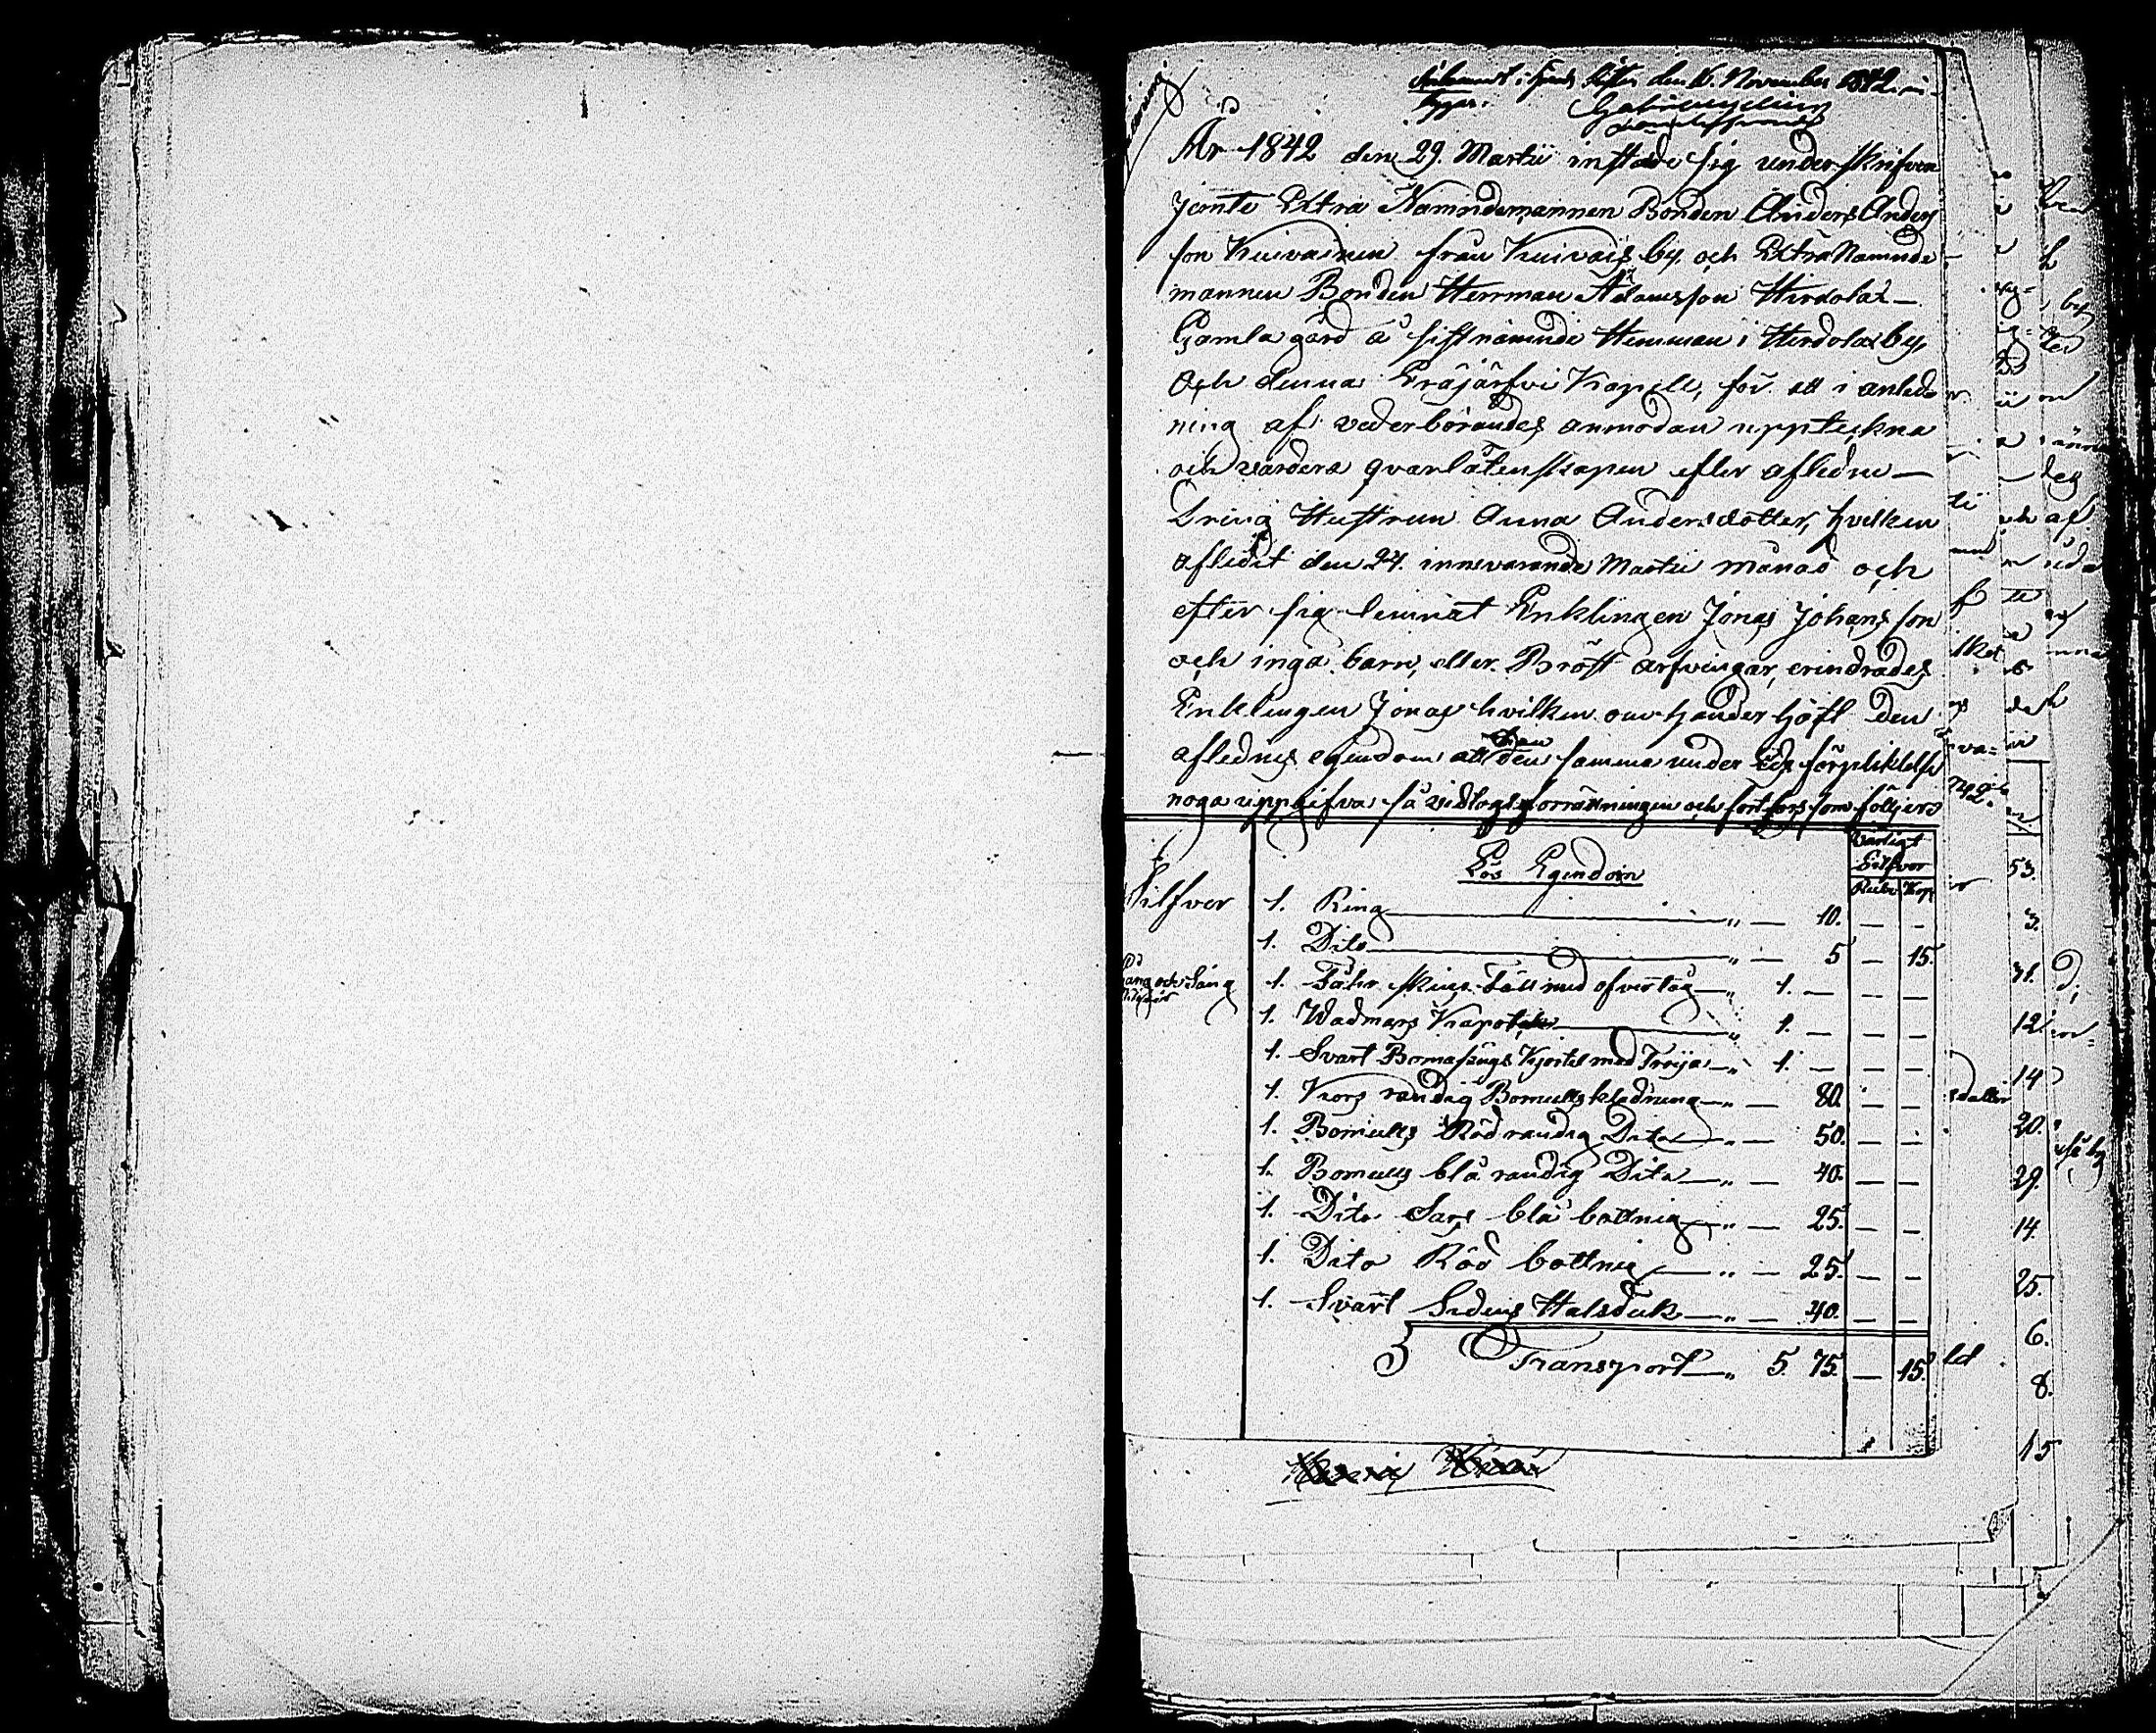 den 16. November 1842
År 1842 den 29. Martii instäde sig underskrifven
Jemte Extra Nämndemannen Bonden Anders Anders
son Kuivainen från Kuivais by och Extra Nämnde
mannen Bonden Herrman Adamsson Hirdola
Gamla gård å sistnämnde Hemman i Hirdola by
Och denna Eräjärfvi Kapell, för att i anled
ning af vederbörandes anmodan uppteckna
och värdera qvarlåtenskapen efter aflidne
Dräng Hustrun Anna Andersdotter, hvilken
aflidit den 24. innevarande Martii månad och
efter sig lemnat Enklingen Jonas Johansson
och inga barn, eller Bröst arfvingar, erindrades
Enklingen Jonas hvilken om händer haft den
aflidnes egendom att den samma under Eds förpliktelse
noga uppgifva så vidtogs förrättningen och fortfors som följer
Lös Egendom
Silfver
Rub Kop
Silfver 1. Ring " — 10. — —
1. Dito " — 5 — 15.
Gång och Säng
kläder
1. Fåhr skins Fäll med öfvertåg " 1. — — —
1. Wadmars Kapot " 1. — — —
1. Svart Bomasings Kjortel med Tröja " 1. — — —
1. Kors randig Bomulls klädning " — 80. — —
1. Bomulls Röd randig Dito " — 50. — —
1. Bomulls blå randig Dito " — 40. — —
1. Dito Sars blå bottnig " — 25. — —
1. Dito Röd bottnig " — 25. — —
1. Svart Sidens Halsduk " — 40. — —
Transport " 5. 75. — 15.
53.
3.
31.
12.
14
20.
29.
14.
25.
6.
8.
15